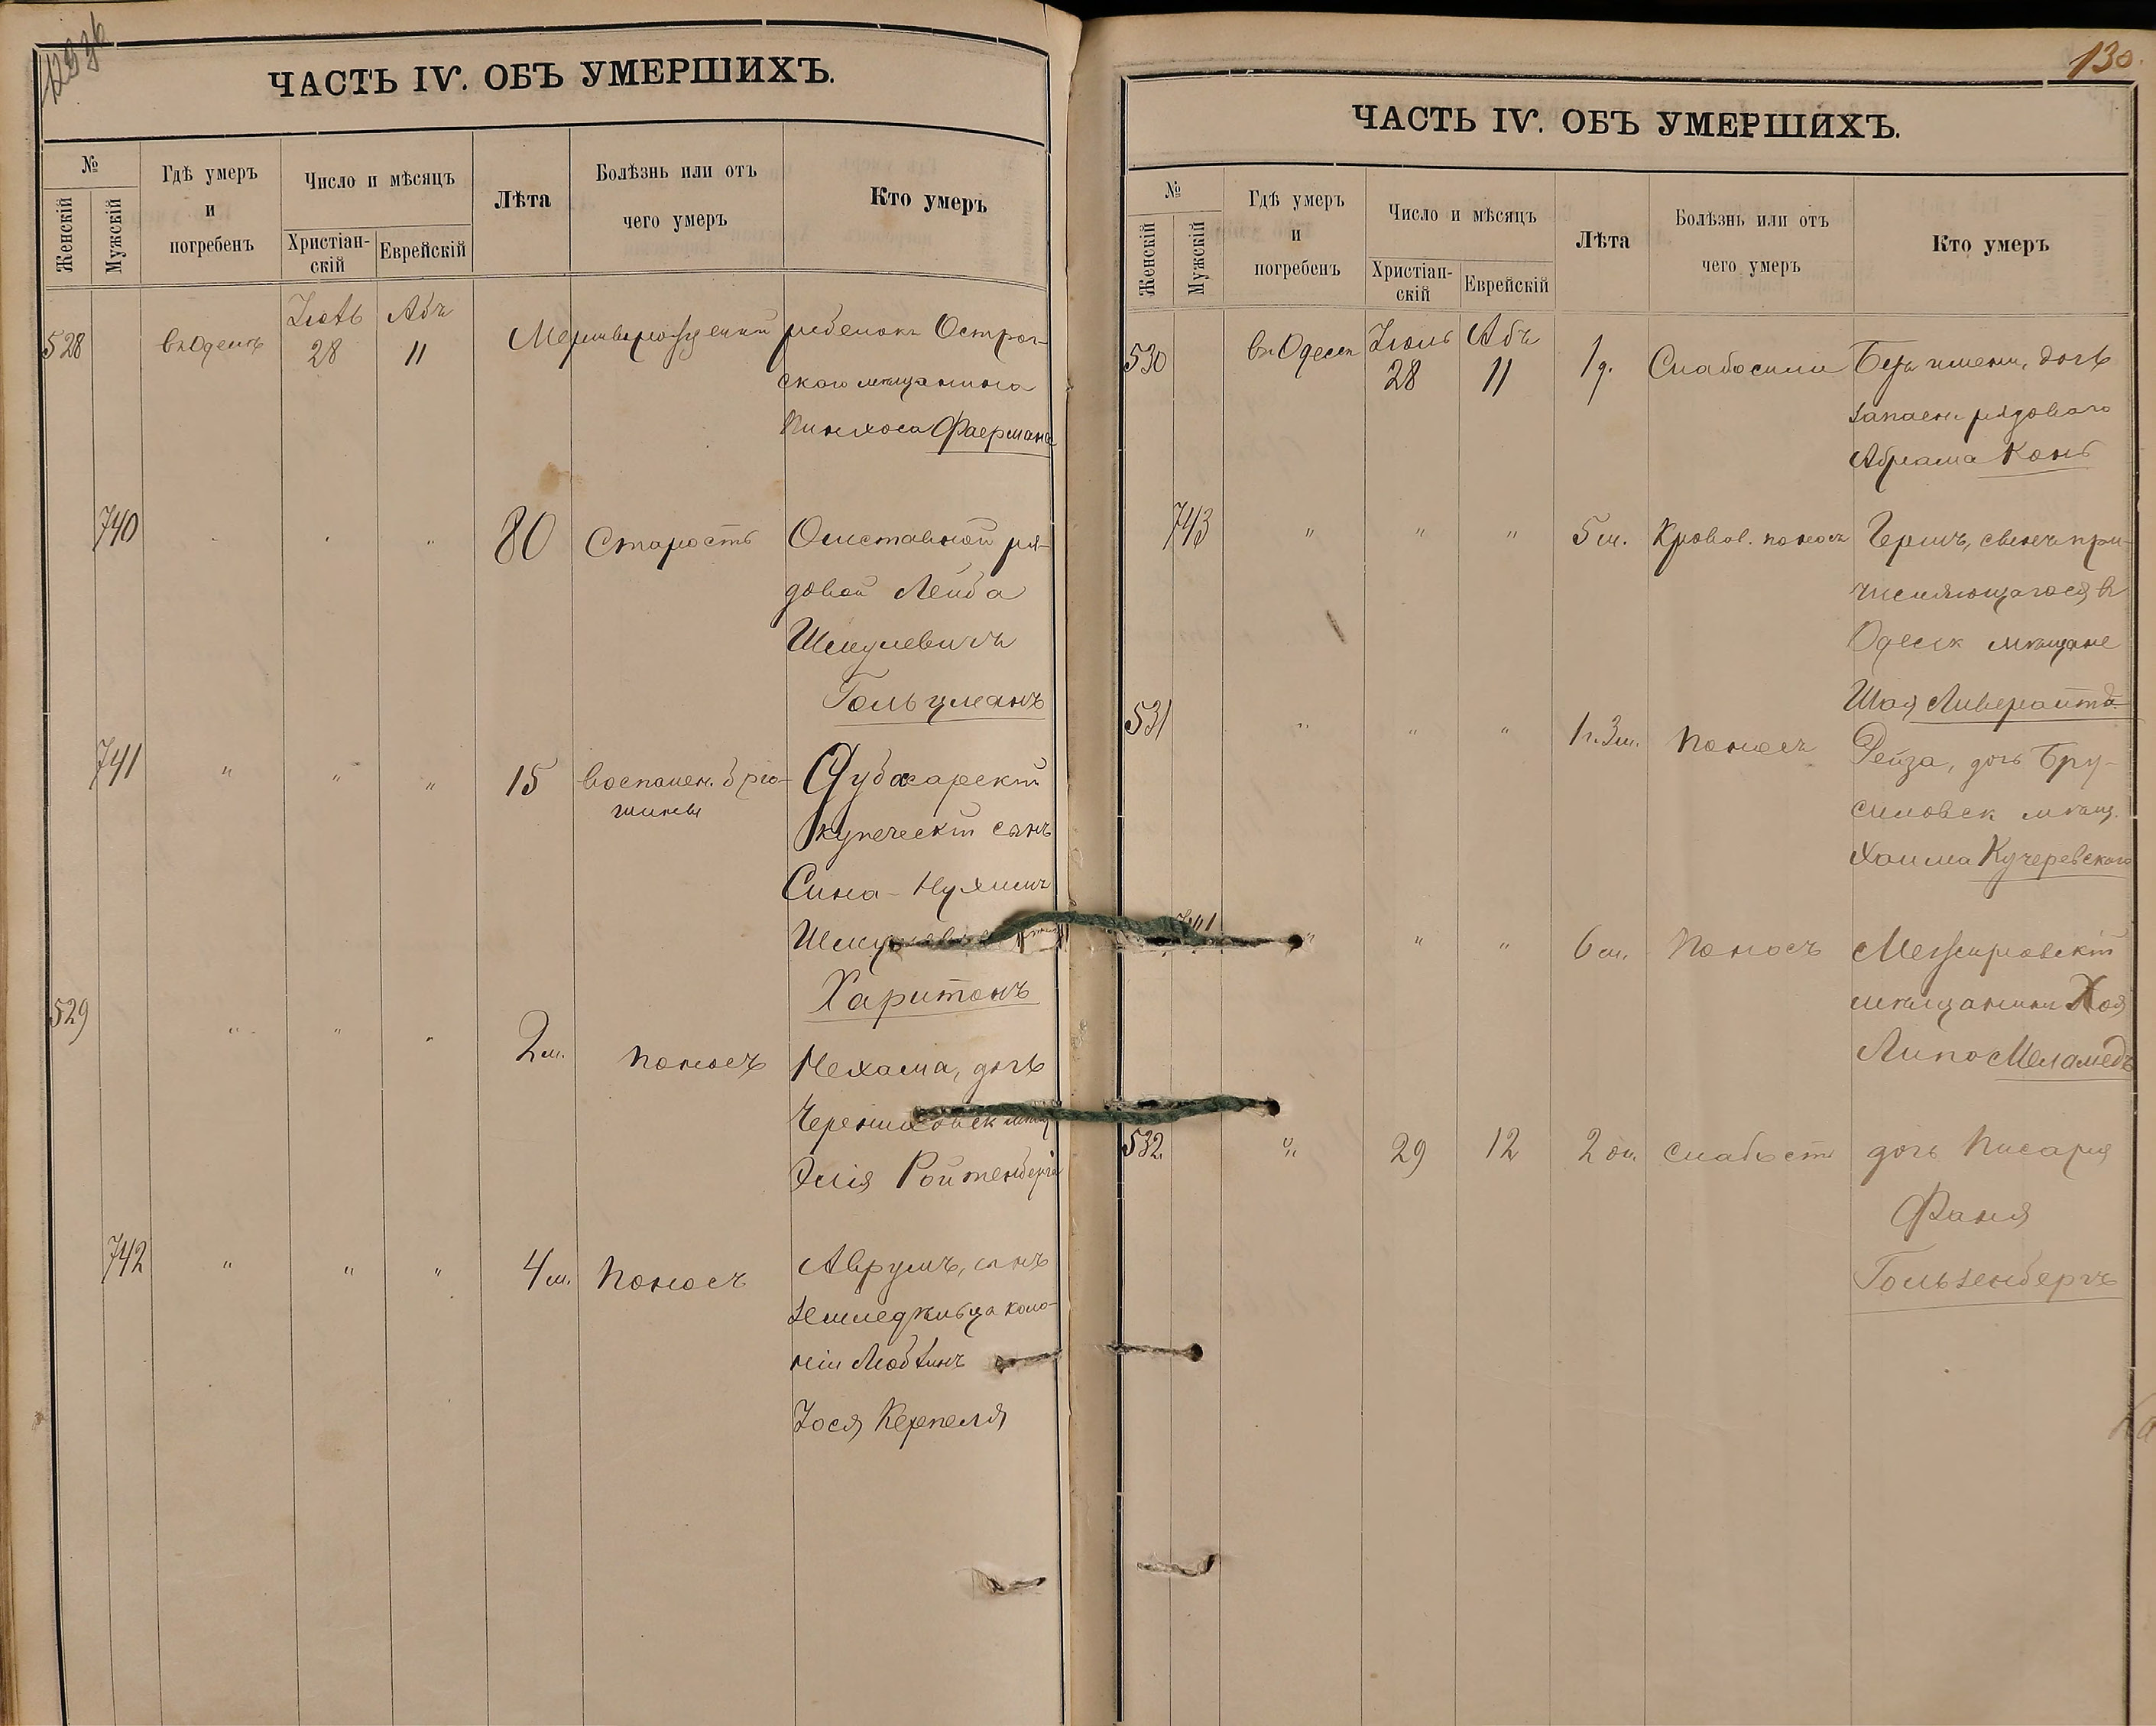 ЧАСТЬ IV. ОБЪ УМЕРШИХЪ.
№
Женскій
Мужскій
Гдѣ умеръ
и
погребенъ
Число и мѣсяцъ
Христіан-
скій
Еврейскій
Лѣта
Болѣзнь или отъ
чего умеръ
Кто умеръ
528 въ Одессѣ Іюль 28 Абъ 11 Мертворожденный ребенокъ Острог-
скаго мѣщанина
Пинхоса Фаермана
740 " " " 80 Старость Отставной ря-
довой Лейба
Шмулевичъ
Гольцманъ
741 " " " 15 Воспален. брю-
шины
Дубоссарскій
купеческій сынъ
Сина-Нухимъ
Харитонъ
529 " " " 2 м. Поносъ Нехама, дочь
Черниховск мѣщ
Эліи Ройтенберга
742 " " " 4 м. Поносъ Аврумъ, сынъ
земледѣльца коло-
ніи
Іося Керпеля
130.
ЧАСТЬ IV. ОБЪ УМЕРШИХЪ.
№
Женскій
Мужскій
Гдѣ умеръ
и
погребенъ
Число и мѣсяцъ
Христіан-
скій
Еврейскій
Лѣта
Болѣзнь или отъ
чего умеръ
Кто умеръ
530 въ Одессѣ Іюль 28 Абъ 11 1 д. Слабосиліе Безъ имени, дочь
запасн рядового
Абрама Конъ
743 " " " 5 м. Кровав. поносъ Гершъ, сынъ при-
числяющагося въ
Одесск мѣщане
Шая
531 " " " 1 г. 3 м. Поносъ Рейза, дочь Бру-
силовск мѣщ.
Хаима Кучеревскаго
" " " 6 м. Поносъ Межировскій
мѣщанинъ
Липо Меламедъ
532. " 29 12 2 дн. слабость дочь Писаря
Фаня
Гользенбергъ